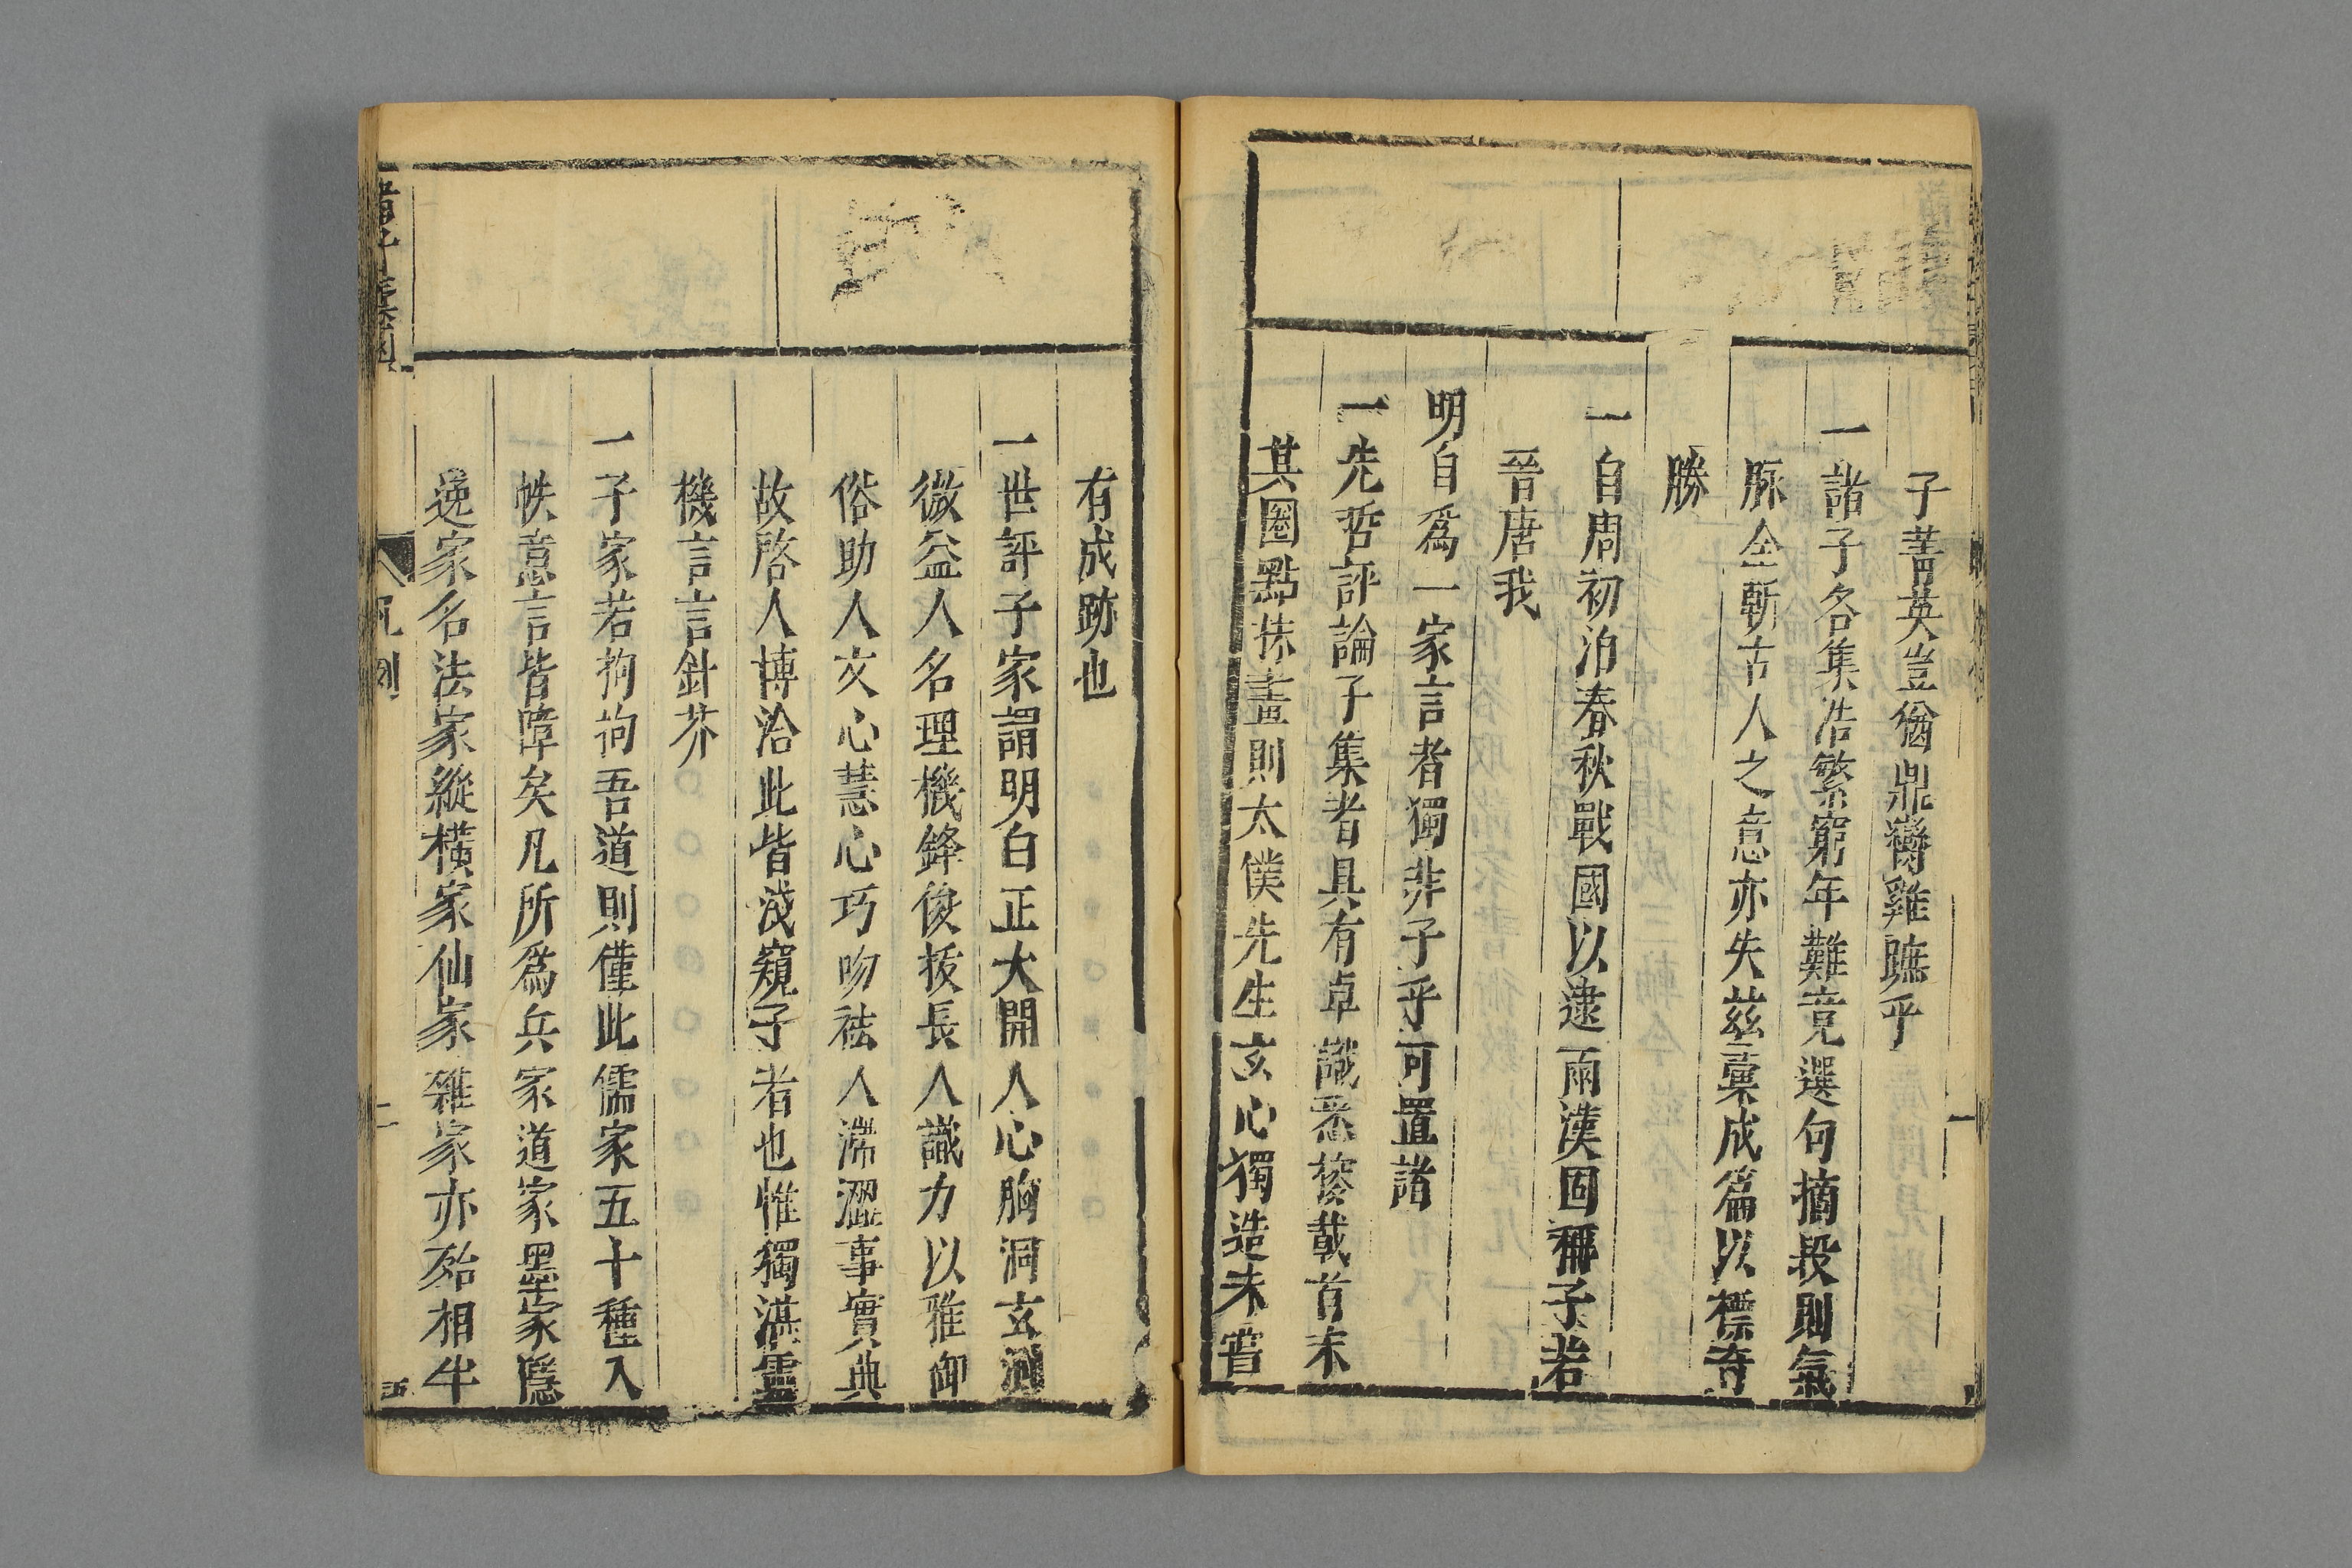 子菁英豈猶鼎臠雞蹠乎
一諸子各集浩繁窮年難竟選句摘段則氣
脉全斬古人之意亦失茲彙成篇以標奇
勝
一自周初洎春秋戰國以逮兩漢固稱子若
晉唐我
明自爲一家言者獨非子乎可置諸
一先哲評論子集者具有卓識悉㨿載首末
其圈點抹畫則太僕先生玄心獨造未嘗
有成跡也
一世評子家謂明白正大開人心胸洞玄測
微益人名理機鋒俊拔長人識力以雅御
俗助人文心慧心巧吻祛人滯澀事實典
故啓人博洽此皆淺窺子者也惟獨湛靈
機言言針芥
一子家若拘拘吾道則僅此儒家五十種入
帙意言皆障矣凡所爲兵家道家墨家隱
逸家名法家縱橫家仙家雜家亦殆相半
凡例
二